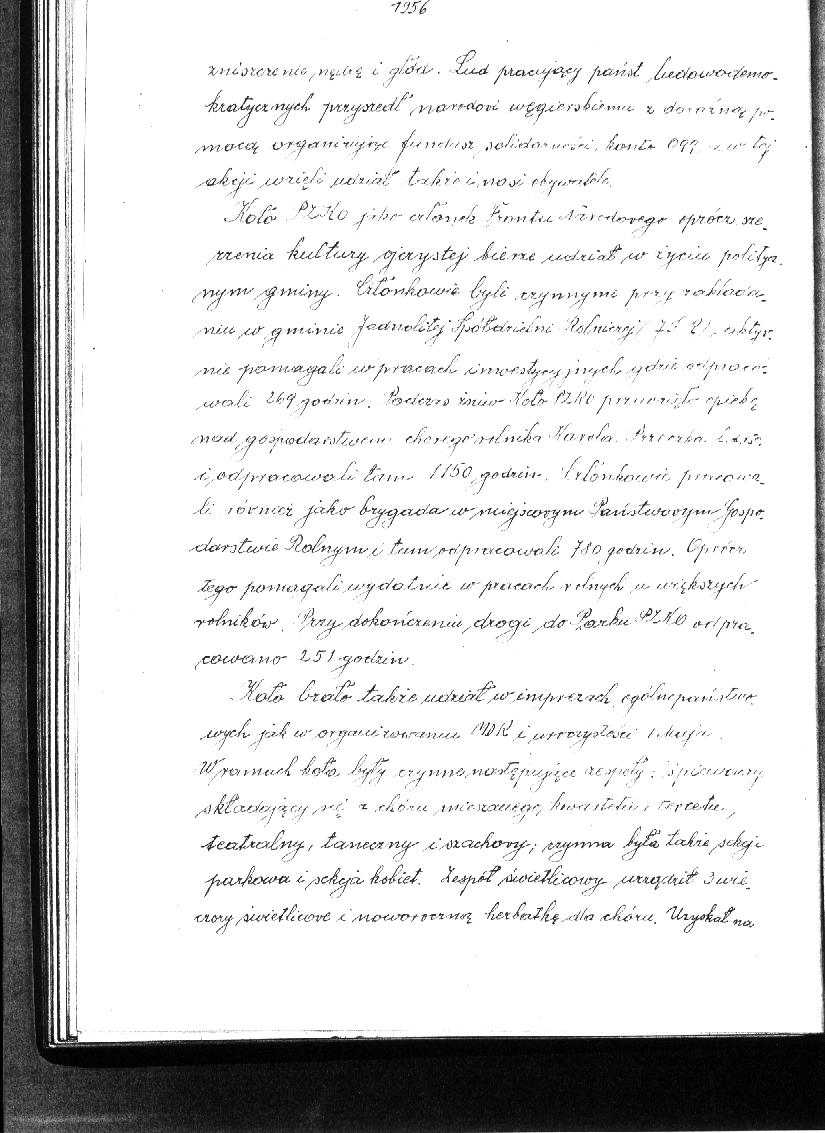 1956
zniszczenie, nędzę i głód. Lud pracujący państ ludowodemo-
kratycznych przyszedł narodowi węgierskiemu z doraźną po-
mocą organizując fundusz solidarności, konto 099 w tej
akcji wzięli udział także i nasi obywatele.
Koło PZKO jako członek Frontu Narodowego oprócz sze-
rzenia kultury ojczystej bierze udział w życiu politycz-
nym gminy. Członkowie byli czynnymi przy zakłada-
niu w gminie Jednolitej Spółdzielni Rolniczej, aktyw-
nie pomagali w pracach inwestycyjnych gdzie odpraco-
wali 269 godzin. Podczas żniw Koło PZKO przwzięło opiekę
nad gospodarstwem chorego rolnika Karola
i odpracowali tam 1150 godzin. Członkowie pracowa-
li również jako brygada w miejscowym Państwowym Gospo-
darstwie Rolnym i tam odpracowali 780 godzin. Oprócz
tego pomagali wydatnie w pracach rolnych u większych
rolników. Przy dokończeniu drogi do Parku PZKO odpra-
cowano 251 godzin.
Koło brało także udział w imprezach ogólnopaństwo-
wych jak w organizowaniu MDK i uroczystości 1 Maja.
W ramach koła były czynne następujące zespoły: śpiewaczy
składający się z chóru mieszanego, kwartetu i tercetu,
teatralny, taneczny i szachowy; czynna była także sekcja
parkowa i sekcja kobiet. Zespół świetlicowy urządził 3 wie-
czory świetlicowe i noworoczną herbatkę dla chóru. Uzyskał na